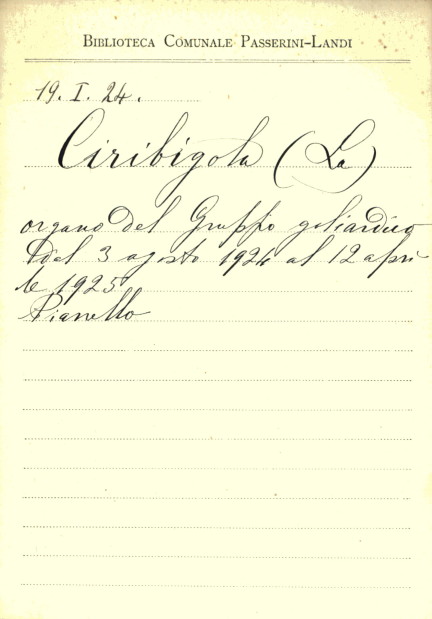 BIBLIOTECA COMUNALE PASSERINI-LANDI
19. I. 24.
Ciribigola (La)
organo del Gruppo goliardico
dal 3 agosto 1924 al 12 apri
le 1925
Pianello